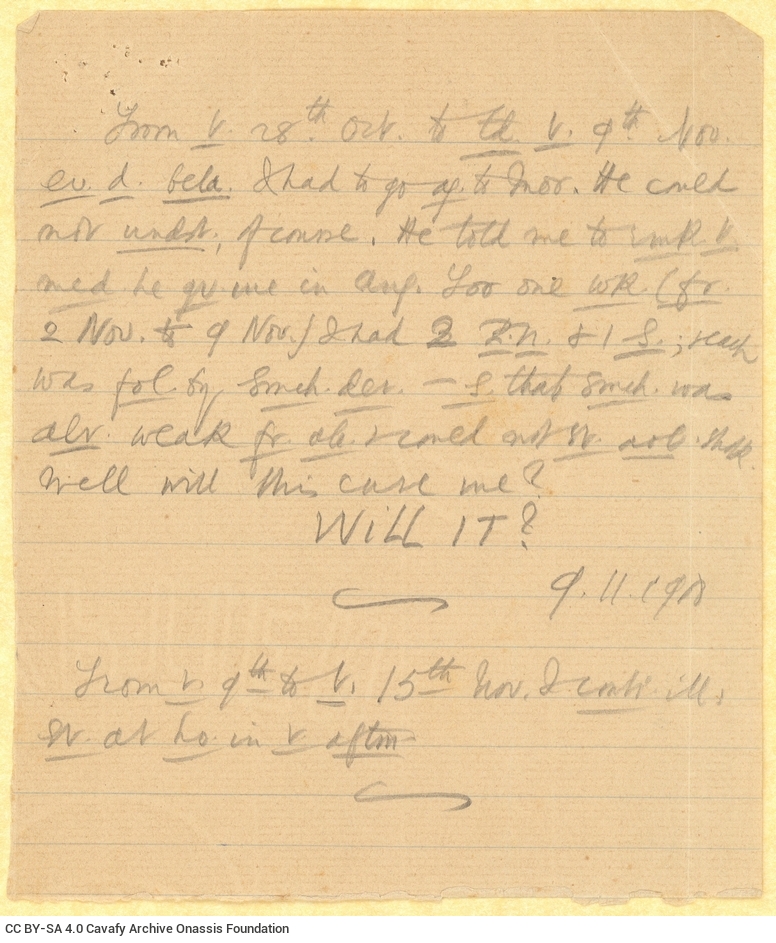 From v. 28th Oct. to td. v. 9th Nov.
ev. d. bela. I had to go ag. to Mor. He could
not undst, of course. He told me to v.
med he gv me in Aug. For one wk. (fr.
2 Nov. to 9 Nov.) I had 2 P.n. & 1 S.; each
was fol. by Smch. Der. — S. that Smch. was
alr. weak fr. alc. & could not st. aolc. shak.
Well will this cure me?
WiLL IT?
9.11.1908
From v. 9th to v. 15th Nov. I conti. ill.
St. at ho. in v. aftrn
CC BY-SA 4.0 Cavafy Archive Onassis Foundation